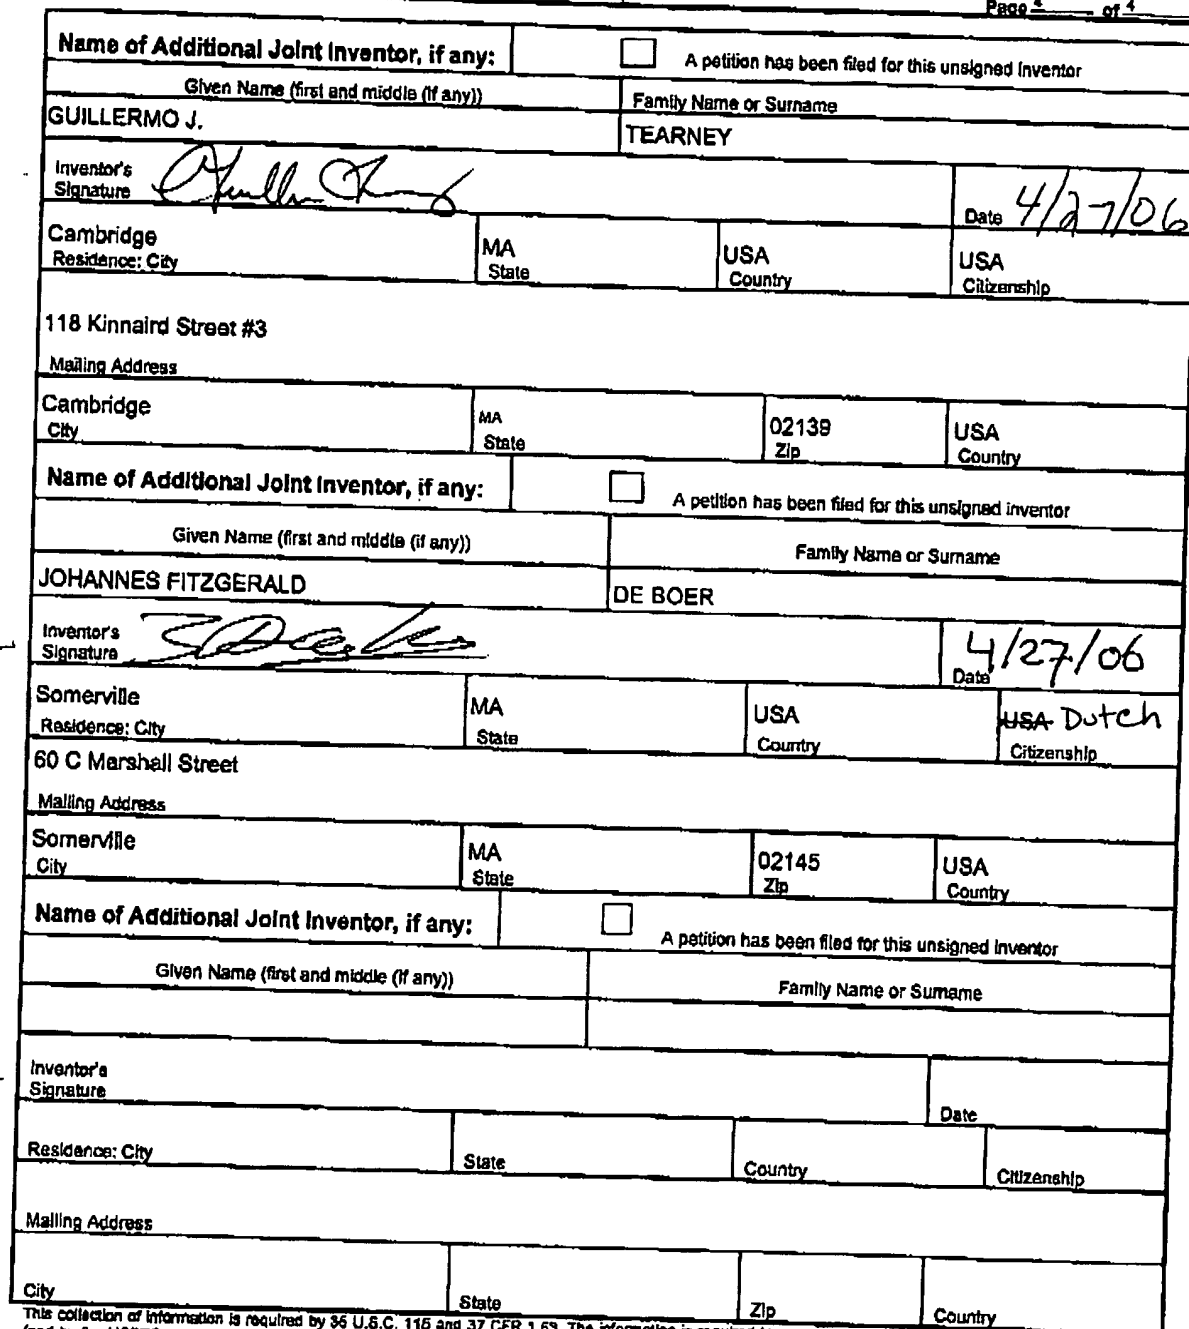 Page 4 of 4
Name of Additional Joint Inventor, if any: A petition has been filed for this unsigned inventor
Given Name (first and middle (if any)) Family Name or Surname
GUILLERMO J. TEARNEY
Inventor's
Signature Date 4/27/06
Cambridge MA USA USA
Residence: City State Country Citizenship
118 Kinnaird Street #3
Mailing Address
Cambridge MA 02139 USA
City State Zip Country
Name of Additional Joint Inventor, if any: A petition has been filed for this unsigned inventor
Given Name (first and middle (if any)) Family Name or Surname
JOHANNES FITZGERALD DE BOER
Inventor's
Signature Date 4/27/06
Somerville MA USA USA Dutch
Residence: City State Country Citizenship
60 C Marshall Street
Mailing Address
Somerville MA 02145 USA
City State Zip Country
Name of Additional Joint Inventor, if any: A petition has been filed for this unsigned inventor
Given Name (first and middle (if any)) Family Name or Surname
Inventor's
Signature Date
Residence: City State Country Citizenship
Mailing Address
City State Zip Country
This collection of information is required by 35 U.S.C. 115 and 37 CFR 1.63. The information is required